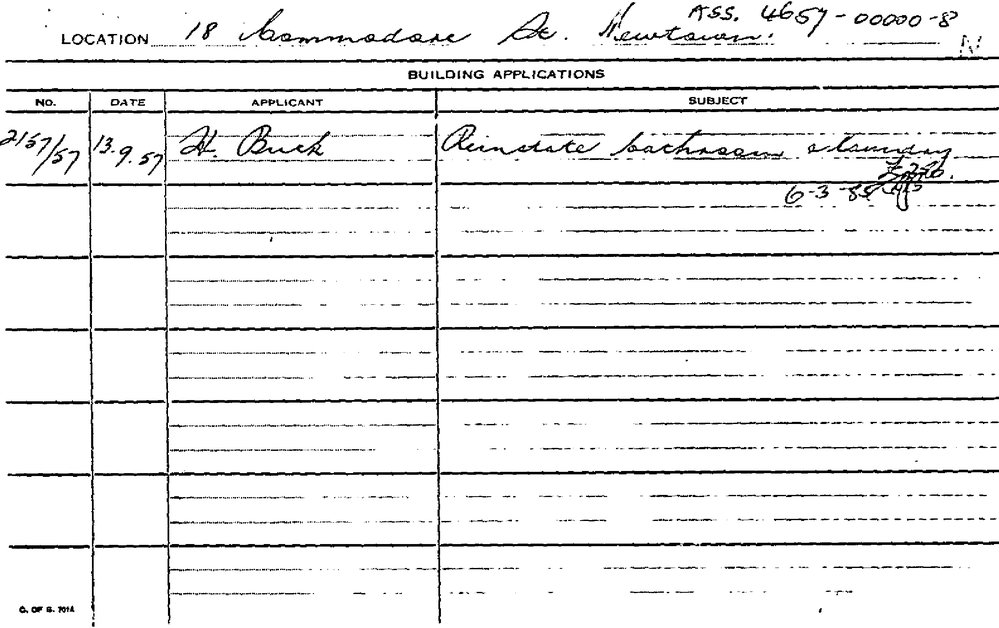 ASS. 4657-00000-8
LOCATION 18 Commodore St. Newtown. N
BUILDING APPLICATIONS
NO. DATE APPLICANT SUBJECT
2157/57 13.9.57 H. Buck Reinstate bathroom & laundry
6-3-85
C. OF S. 7014